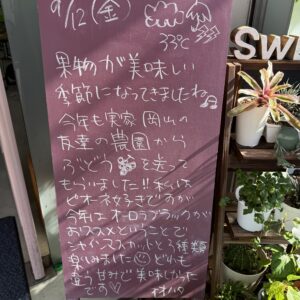 9/12(金)
33℃
果物が美味しい
季節になってきましたね♫
今年も実家 岡山の
友達の農園から
ぶどうを送って
もらいました!!私は
ピオーネ好きですが
今年はオーロラブラックが
おススメということで
シャインマスカットと3種類
楽しみました どれも
違う甘みで美味しかった
です♡
SW